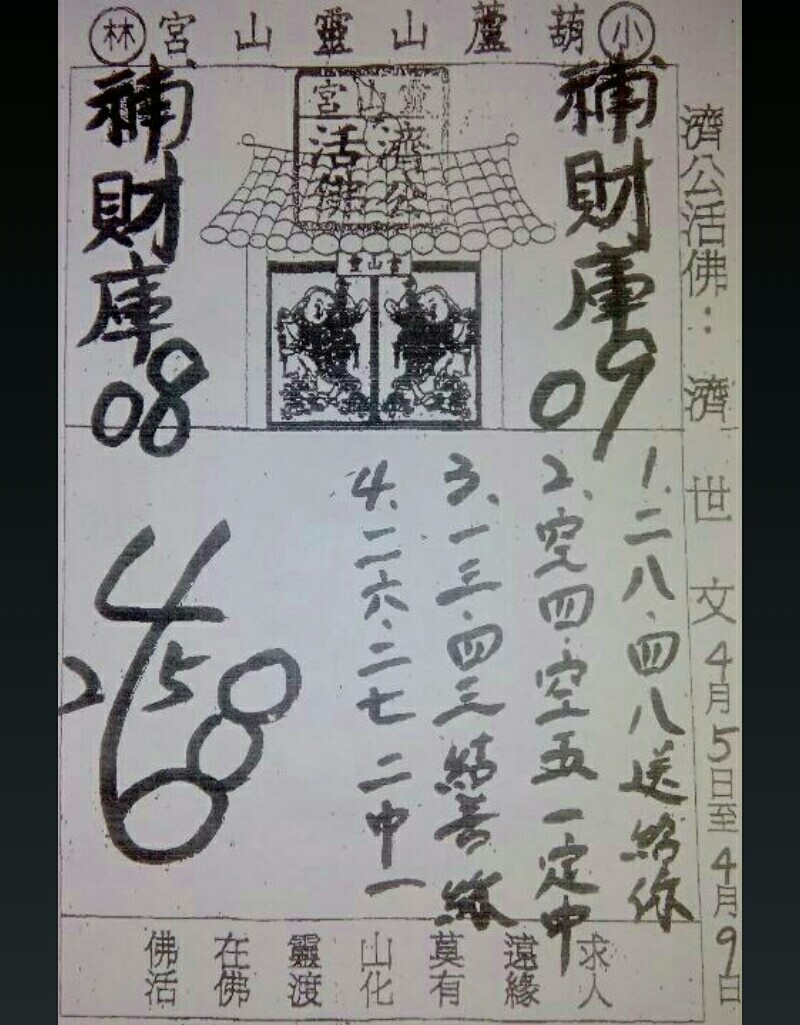 小 葫蘆山靈山宮 林
濟公活佛：濟世文4月5日至4月9日
補財庫09
靈山宮
濟公
活佛
靈山宮
補財庫08
1、二八・四八送給你
2、空四・空五一定中
3、一三・四三結善緣
4、二六・二七二中一
4
2 5 8
6
佛在靈山莫遠求
活佛渡化有緣人